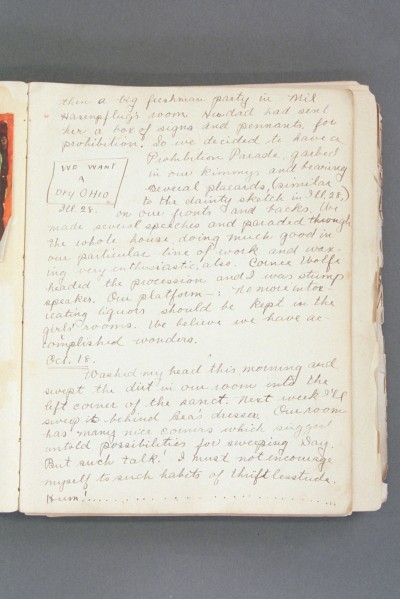 then a big freshman party in Mil
Hasenpflug's room. Her dad had sent
her a box of signs and pennants, for
prohibition. So we decided to have a
Prohibition Parade, garbed
in our kimmys and bearing
several placards, (similar
to the dainty sketch in Ill. 28,)
WE WANT
A
Dry OHIO.
Ill. 28.
on our fronts and backs. We
made several speeches and paraded through
the whole house, doing much good in
our particular line of work and wax-
ing very enthusiastic, also. Corner Wolfe
headed the procession and I was stump
speaker. Our platform—: No more intox-
icating liquors should be kept in the
girls' rooms. We believe we have ac-
complished wonders.
Oct. 18.
Washed my head this morning and
swept the dirt in our room into the
left corner of the sanct. Next week I'll
sweep it behind Bea's dresser. Our room
has many nice corners which suggest
untold possibilities for sweeping Day.
But such talk! I must not encourage
myself to such habits of thriftlesstude.
Hum!